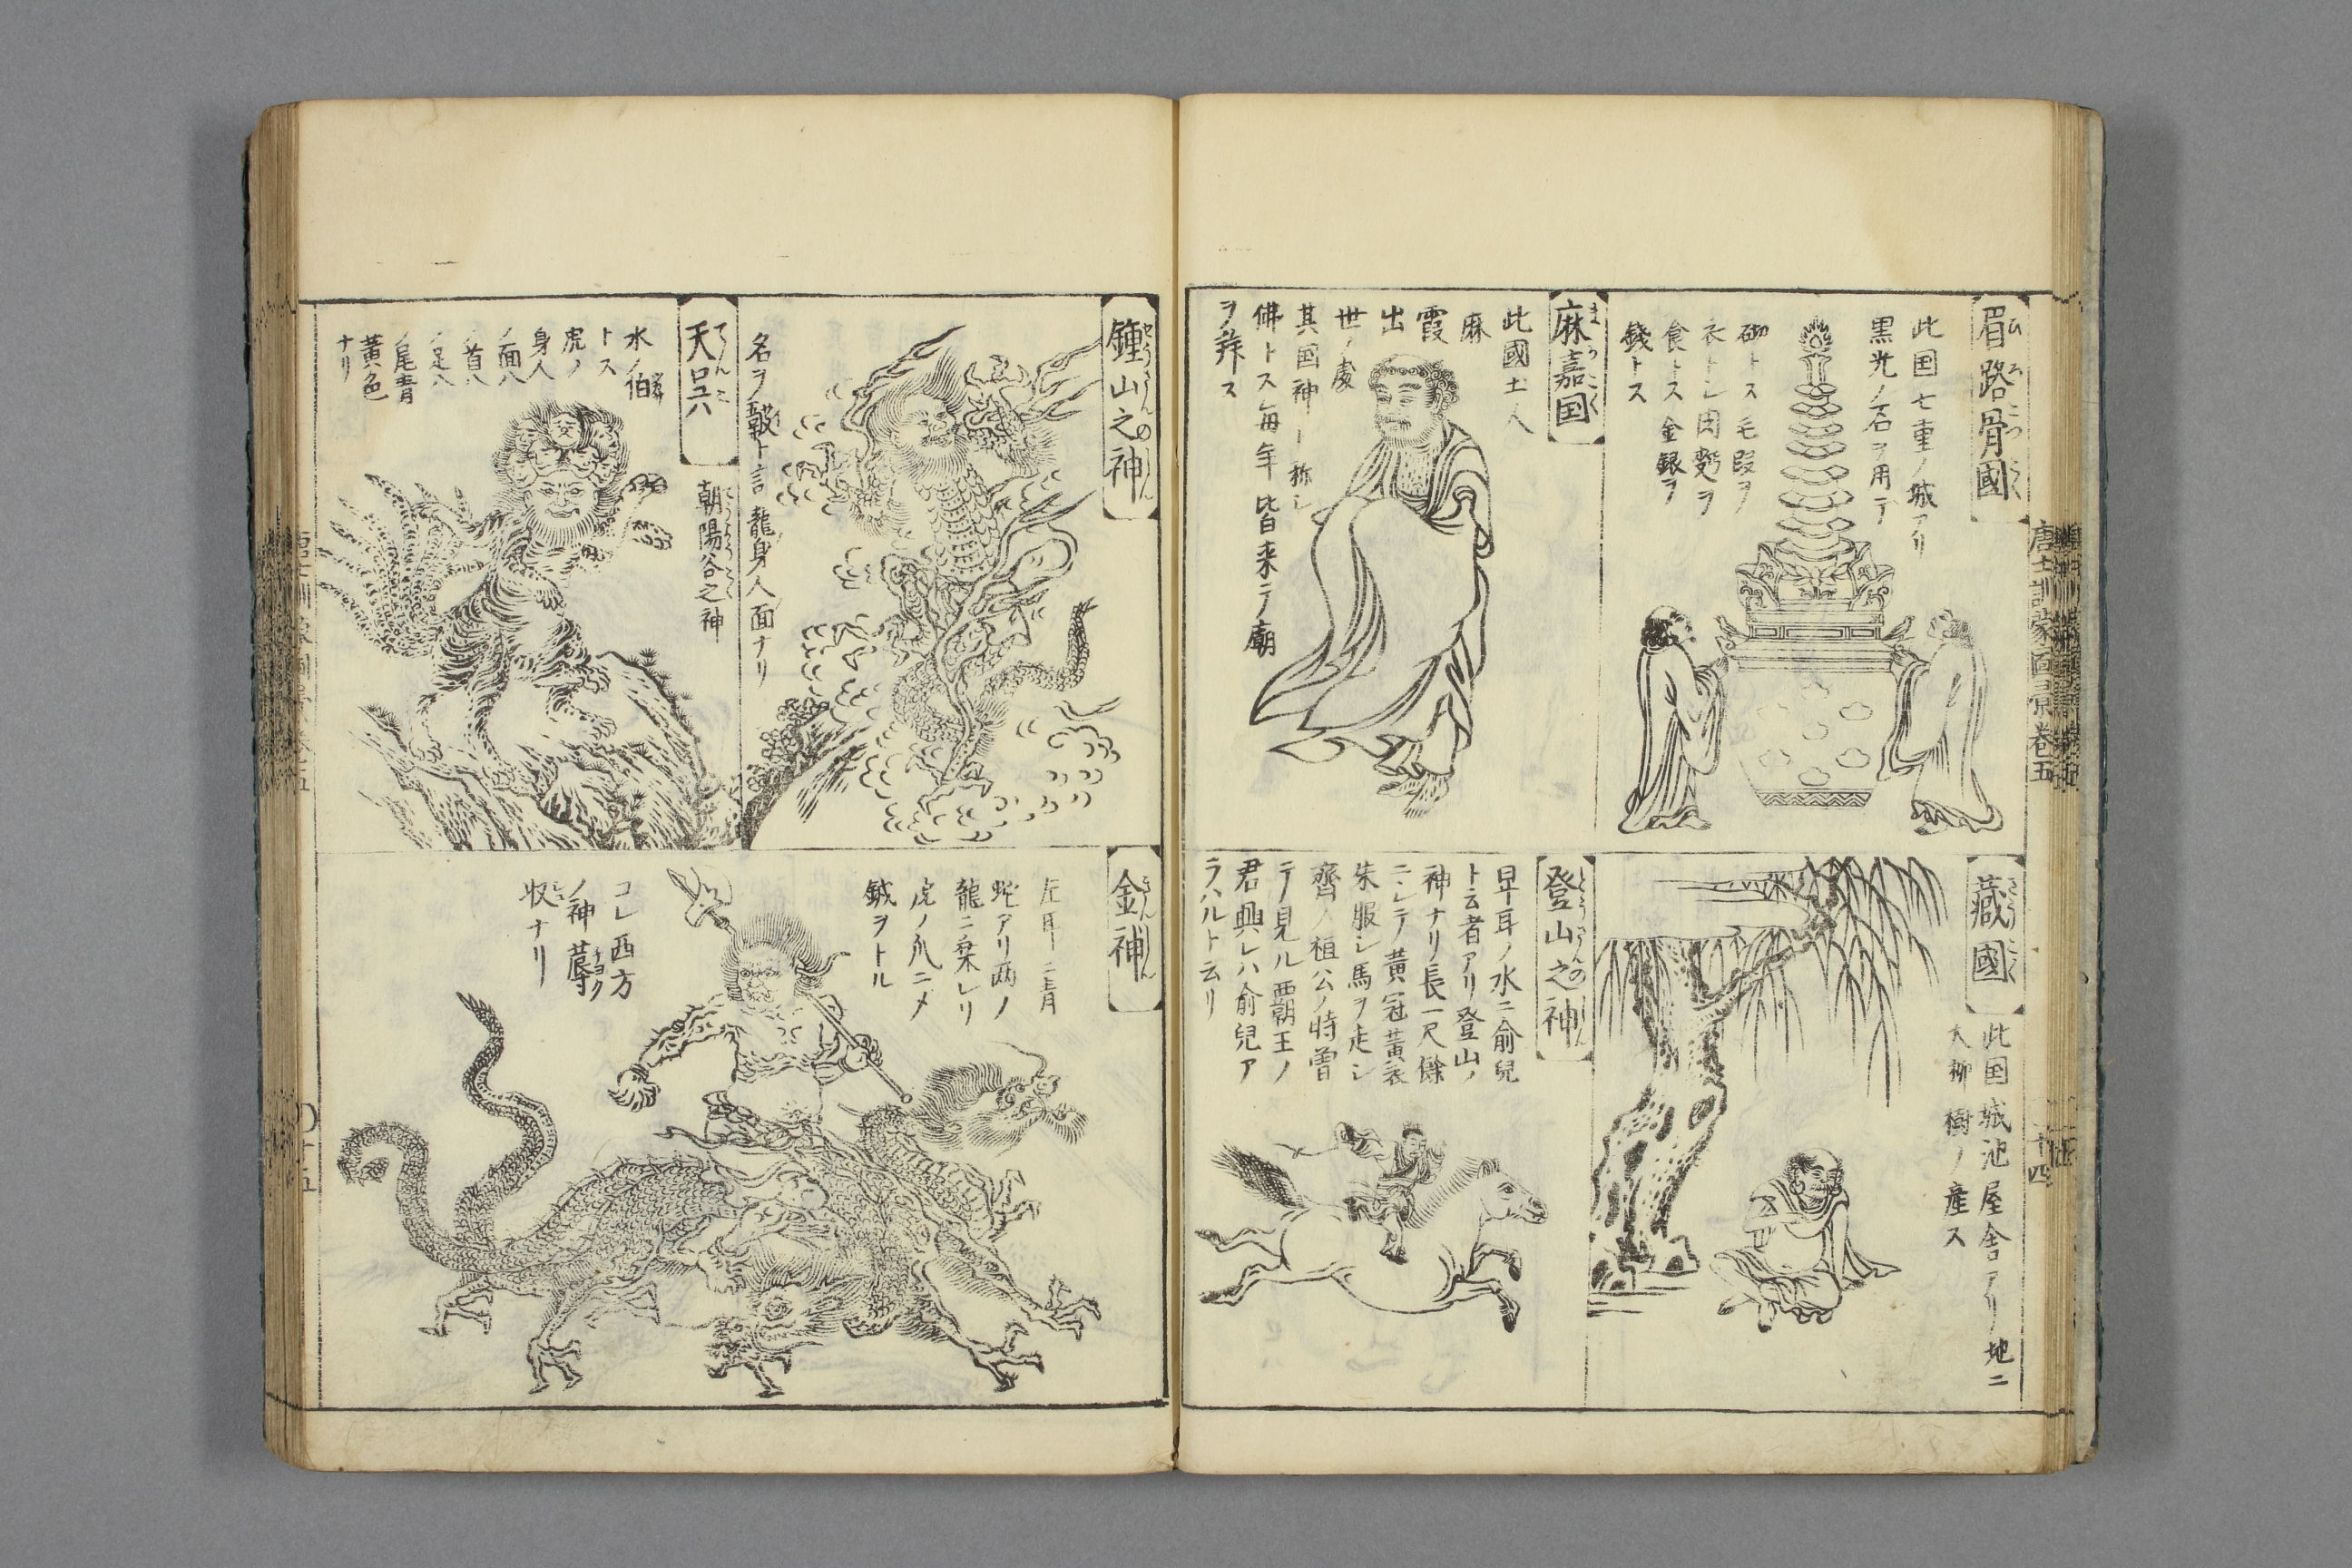 眉路骨國
此国七重ノ城アリ
黒光ノ石ヲ用テ
砌トス毛段ヲ
衣トシ肉麪ヲ
食トス金銀ヲ
錢トス
麻嘉国
此國土人
麻
霞
出
世ノ處
其国神ト称シ
佛トス毎年皆来テ廟
ヲ拜ス
藏國
此国城池屋舎アリ地ニ
大柳樹ノ産ス
登山之神
卑耳ノ水ニ俞兒
ト云者アリ登山ノ
神ナリ長一尺餘
ニシテ黄冠黄衣
朱服シ馬ヲ走シ
齊ノ祖公ノ時曽
テ見ル覇王ノ
君興レハ俞兒ア
ラハルト云リ
唐土訓蒙圖彙巻五
十四
鍾山之神
名ヲ皷ト言龍身人面ナリ
天呉
朝陽谷之神
水ノ伯
トス
虎ノ
身人
ノ面八
ノ首八
ノ足八
ノ尾青
黄色
ナリ
金神
左耳ニ青
蛇アリ両ノ
龍ニ乗レリ
虎ノ爪ニメ
鉞ヲトル
コレ西方
ノ神蓐
収ナリ